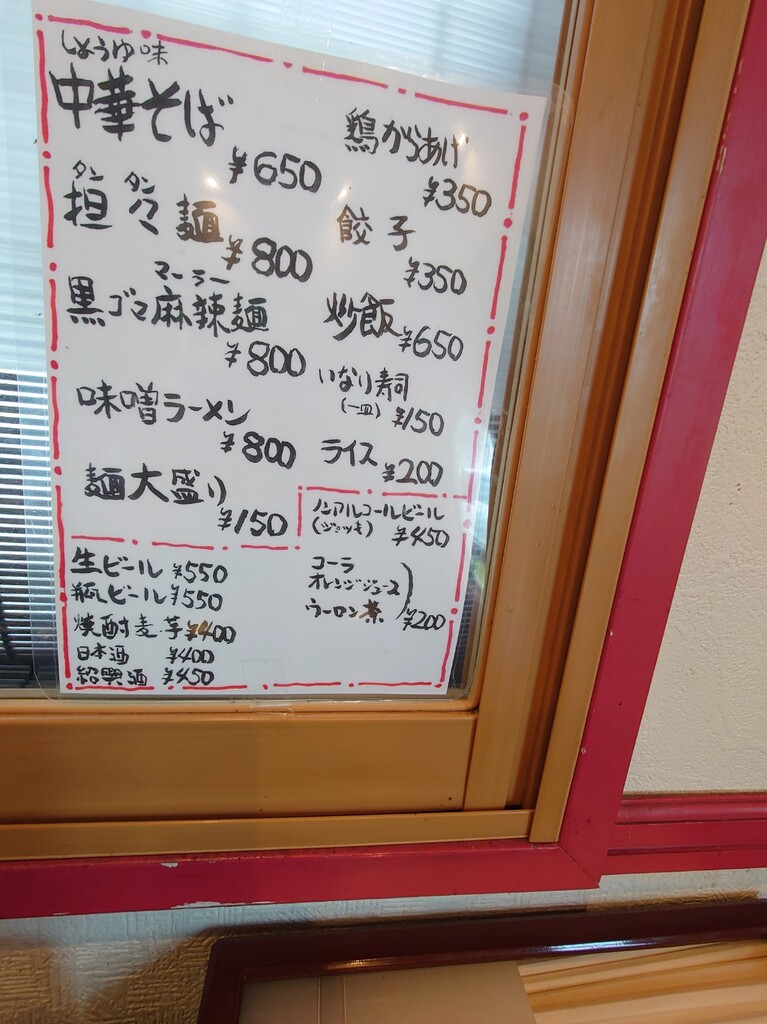 しょうゆ味
中華そば
¥650
タンタン
担々麺
¥800
マーラー
黒ゴマ麻辣麺
¥800
味噌ラーメン
¥800
麺大盛り
¥150
鶏からあげ
¥350
餃子
¥350
炒飯 ¥650
いなり寿司
(一皿) ¥150
ライス ¥200
ノンアルコールビール
(ジョッキ) ¥450
生ビール ¥550
瓶ビール ¥550
焼酎麦芋 ¥400
日本酒 ¥400
紹興酒 ¥450
コーラ
オレンジジュース
ウーロン茶 ¥200